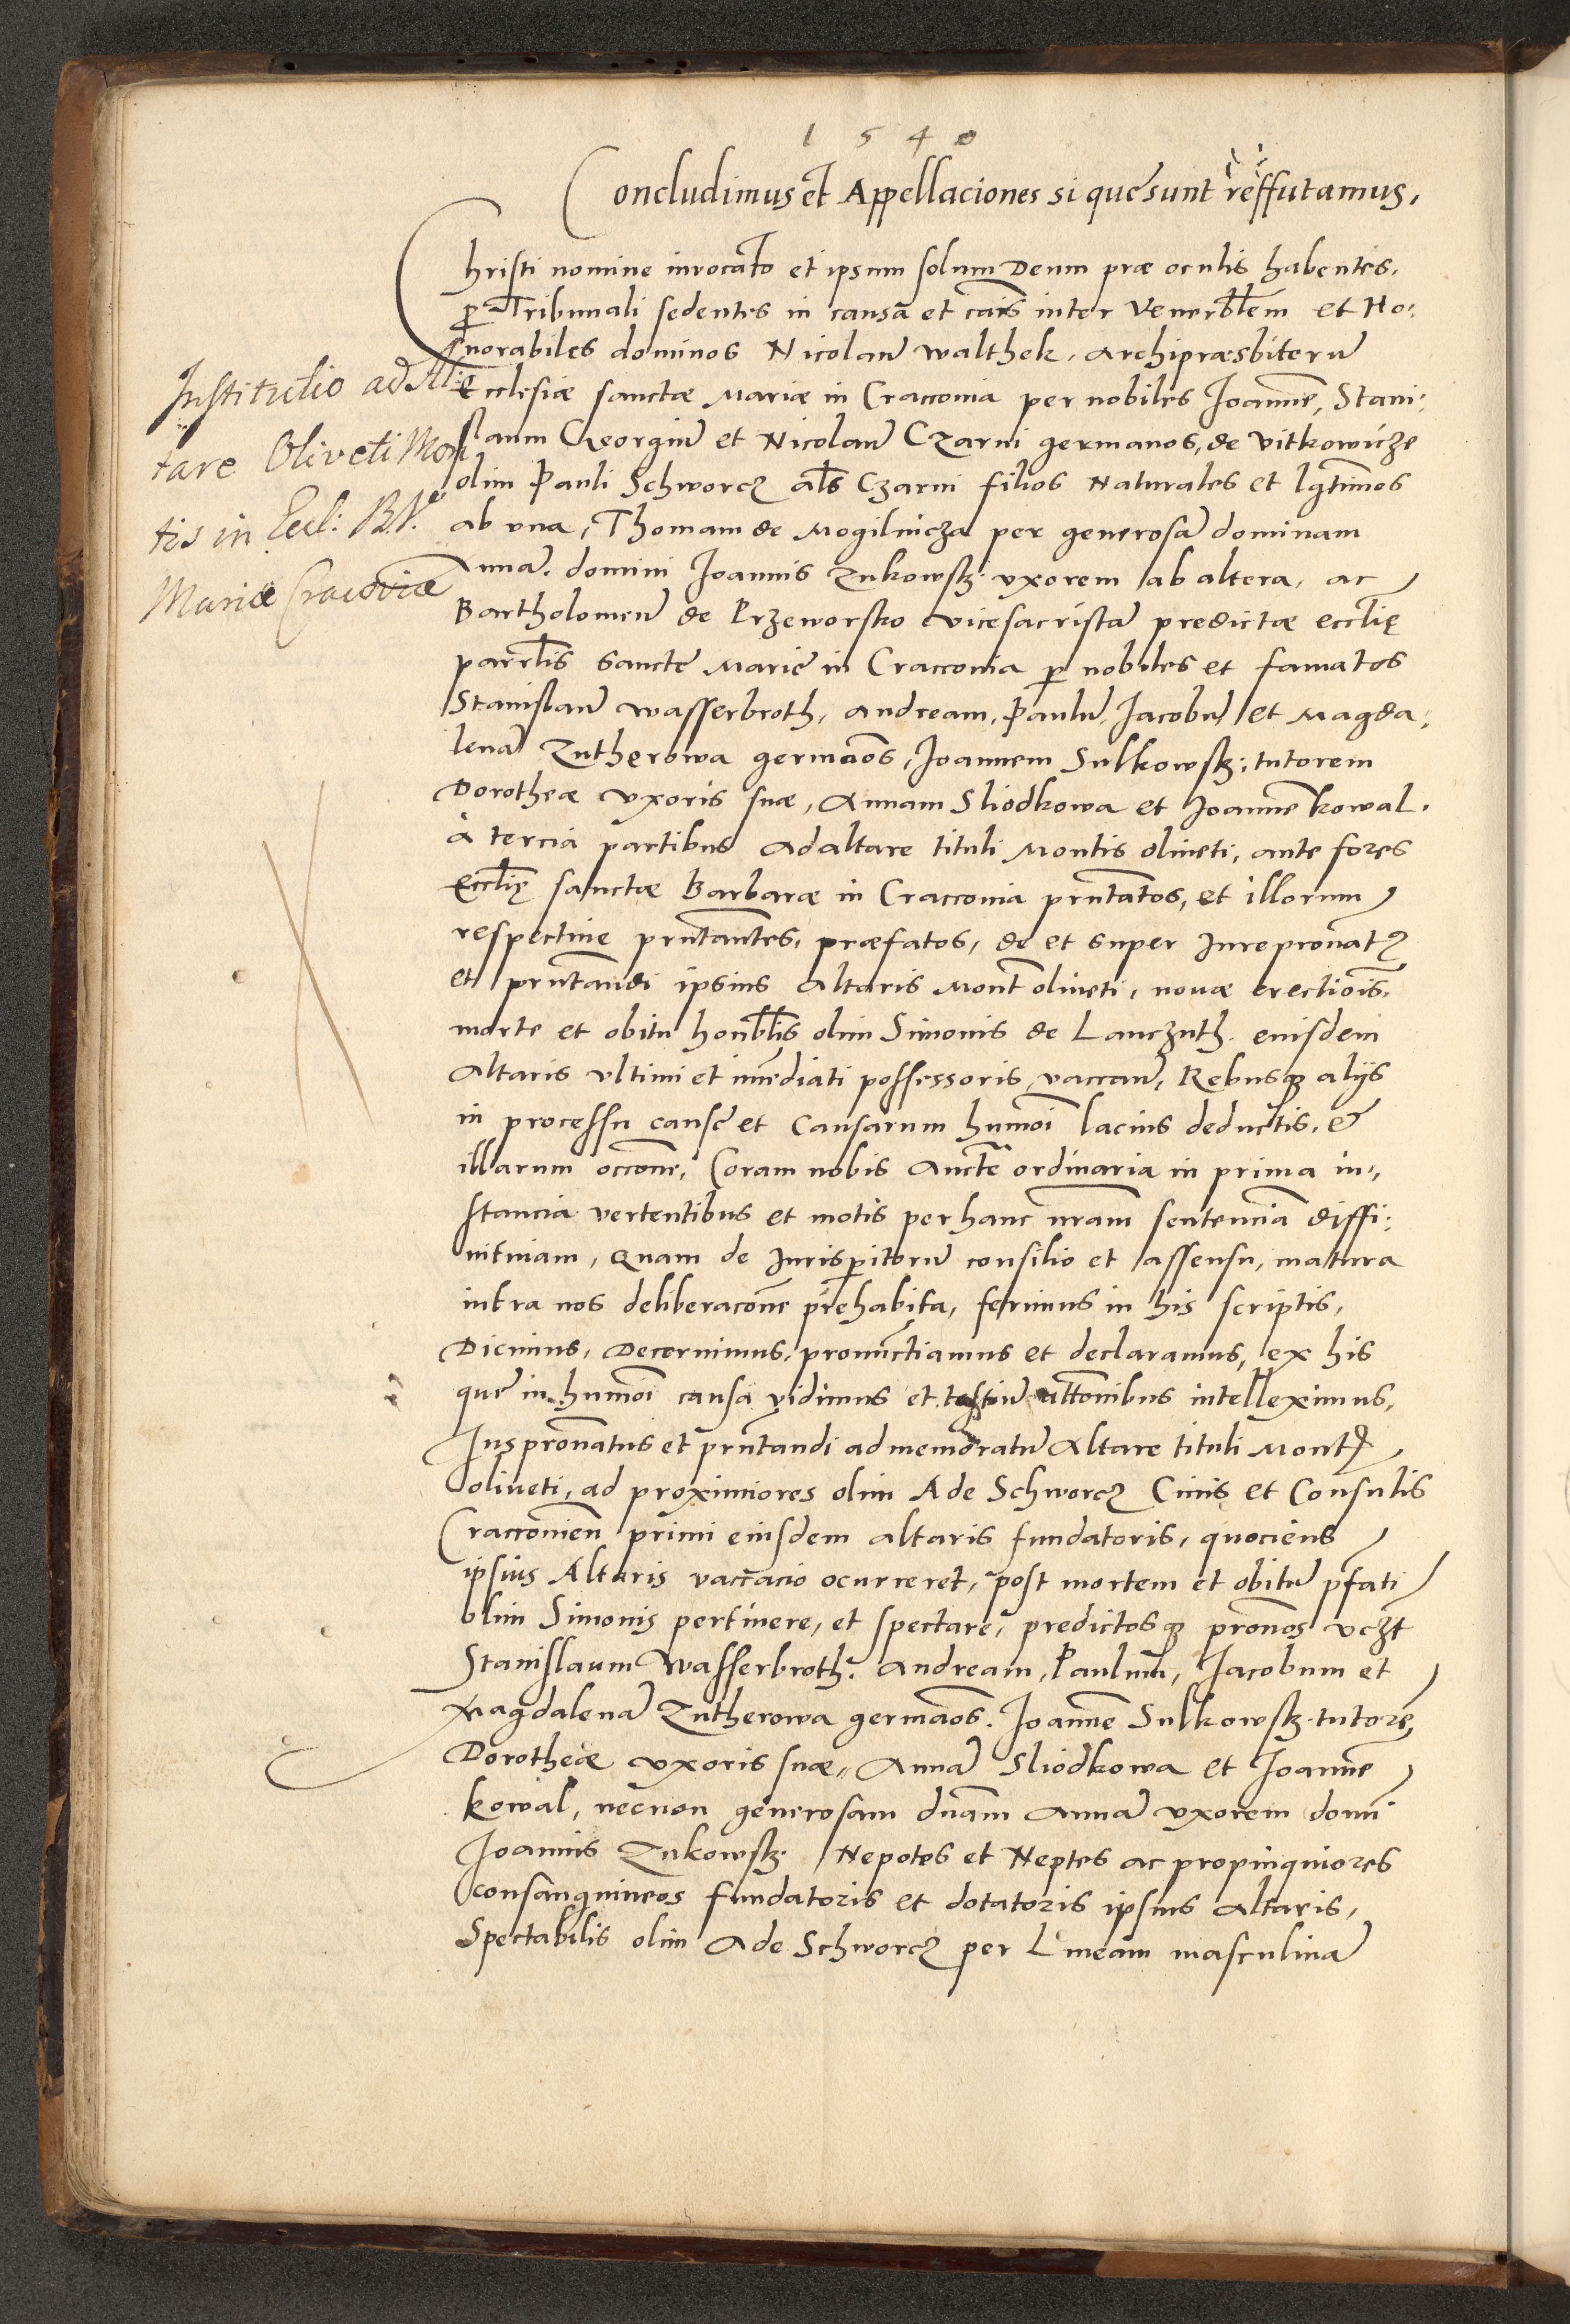 1540
Concludimus et Appellaciones si que sunt reffutamus,
Christi nomine invocato et ipsum solum Deum præ oculis habentes.
p Tribunali sedentes in causa et cais inter Venerblem et Ho:
norabiles dominos Nicolaũ walthek, Archipræsbiterũ
Institutio ad Al:
Ecclesiæ sanctæ Mariæ in Cracconia per nobiles Joannẽ, Stani:
slaum Georgiũ et Nicolaũ Czarni germanos, de vitkowicze
tare Oliveti Mon
olim Pauli Schworcz als Czarni filios Naturales et lgtimos
tis in Eccl: B.V.
ab vna, Thomam de Mogilnicza per generosã dominam
Annã. domini Joannis Zukowsk: vxorem ab altera, ac
Mariæ Cracoviæ
Bartholomeũ de Przeworsko vicesacristã predictæ ecclię
parrlis sancte Marie in Cracconia p nobiles et famatos
Stanislaũ wasserbroth, andream, Paulũ, Jacobũ et Magda:
lenã Zutherowa germãos, Joannem Sulkowsk: tutorem
Dorotheæ vxoris suæ, Annam Sliodkowa et Joannẽ kowal.
à tercia partibus ad altare tituli Montis oliueti, ante fores
Ecclię sanctæ Barbaræ in Cracconia pntatos, et illorum
respectiue pntantes, præfatos, de et super Jurepronat9
et pntandi ipsius altaris Mont oliueti, nouæ erectiois,
morte et obitu honblis olim Simonis de Lanczuth. eiusdem
Altaris vltimi et imediati possessoris vaccan, Rebusq alijs
in processu cause et causarum humoi lacius deductis, &
illarum occone, Coram nobis Aucte ordinaria in prima in,
stancia vertentibus et motis per hanc nram sentenciã diffi:
nitiuam, quam de Jurisperitorũ consilio et assensu, matura
intra nos deliberacone prehabita, ferimus in his scriptis,
Dicimus, Decernimus, pronunctiamus et declaramus, ex his
que in humoi causa vidimus et testiũ attonibus intelleximus,
Juspronatus et pntandi ad memoratũ Altare tituli Mont
oliueti, ad proximiores olim Ade Schworcz Ciuis et Consulis
Cracconien primi eiusdem altaris fundatoris, quociens
ipsius Altaris vaccacio ocurreret, post mortem et obitũ pfati
olim Simonis pertinere, et spectare, predictosq pronos vczt
Stanislaum Wasserbroth. Andream, Paulum, Jacobum et
Magdalenã Zutherowa germãos. Joannẽ Sulkowsk: tutorẽ
Dorotheæ vxoris suæ, Annã Sliodkowa et Joannẽ
kowal, necnon generosam dnam Annã vxorem domi
Joannis Zukowsk: Nepotes et Neptes ac propinquiores
consanguineos fundatoris et dotatoris ipsius altaris,
Spectabilis olim Ade Schworcz per Lineam masculinã